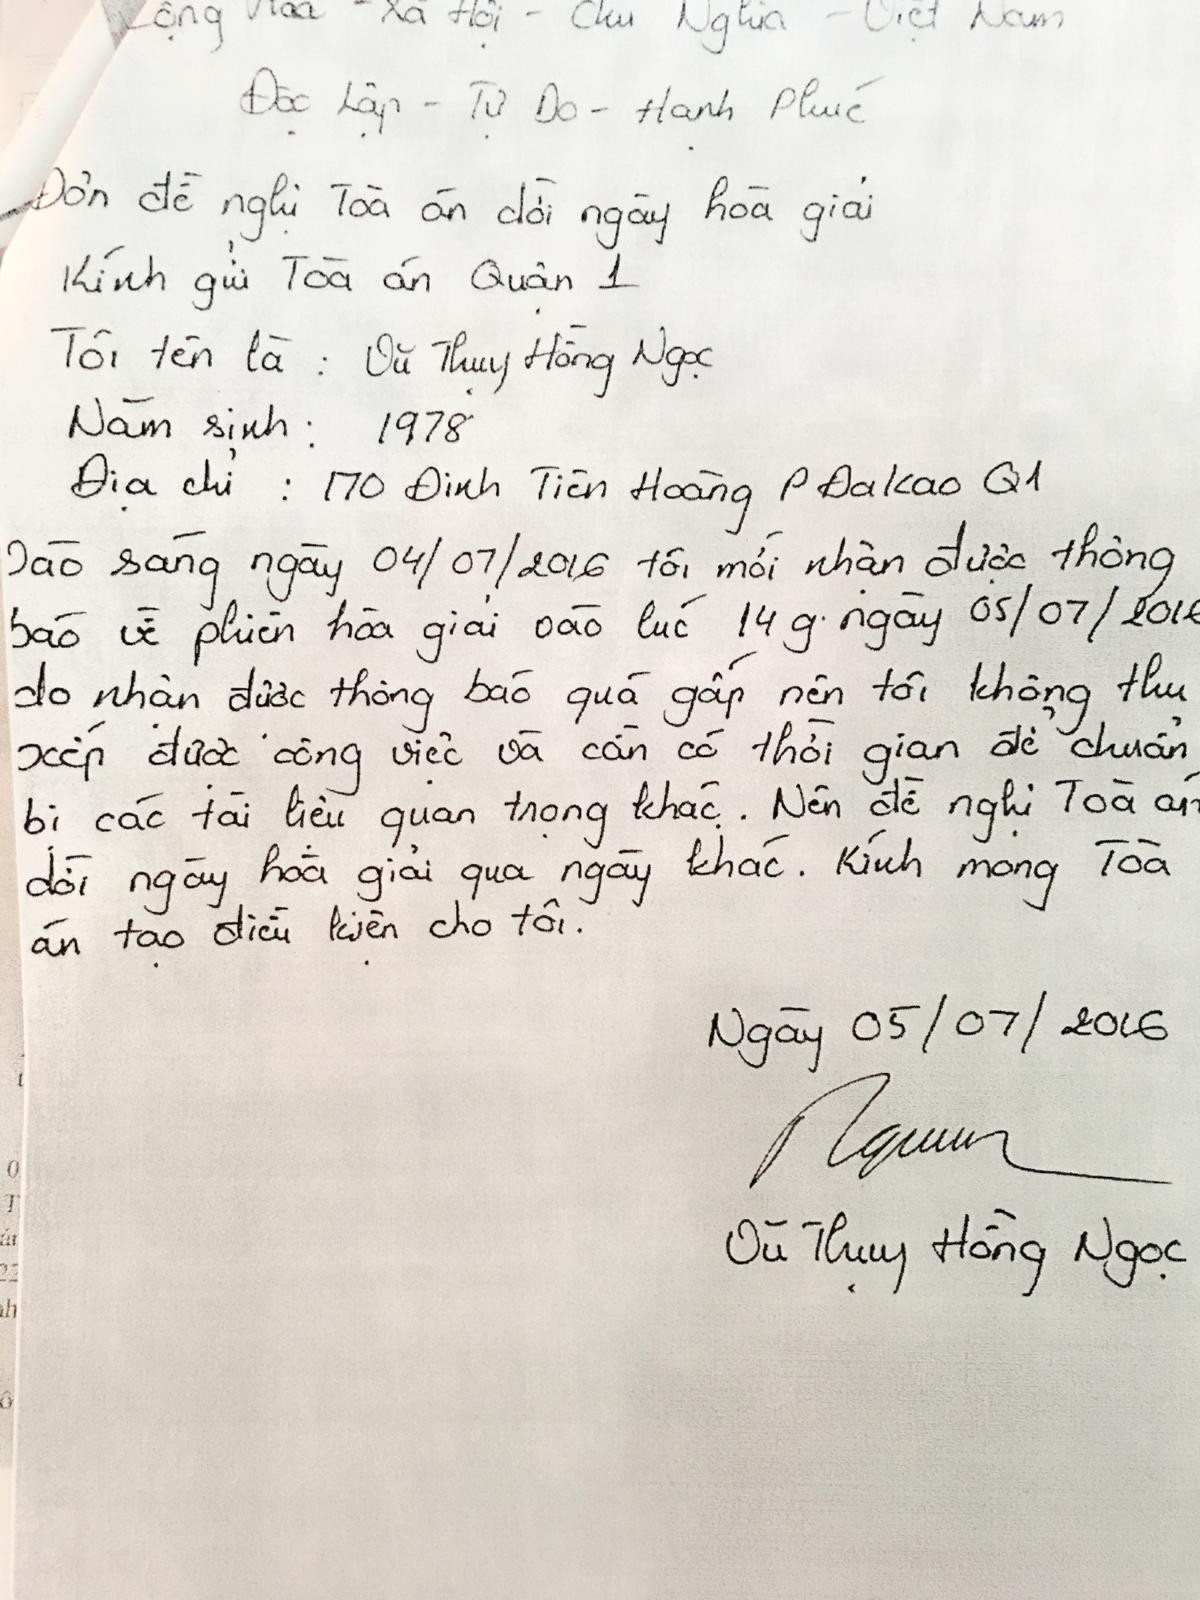 Cộng Hòa - Xã Hội - Chủ Nghĩa - Việt Nam
Độc Lập - Tự Do - Hạnh Phúc
Đơn đề nghị Toà án dời ngày hòa giải
Kính gửi Toà án Quận 1
Tôi tên là : Vũ Thụy Hồng Ngọc
Năm sinh : 1978
Địa chỉ : 170 Đinh Tiên Hoàng P Đakao Q1
Vào sáng ngày 04/07/2016 tôi mới nhận được thông
báo về phiên hòa giải vào lúc 14g. ngày 05/07/2016
do nhận được thông báo quá gấp nên tôi không thu
xếp được công việc và cần có thời gian để chuẩn
bị các tài liệu quan trọng khác. Nên đề nghị Toà án
dời ngày hoà giải qua ngày khác. Kính mong Toà
án tạo điều kiện cho tôi.
Ngày 05/07/2016
Vũ Thụy Hồng Ngọc